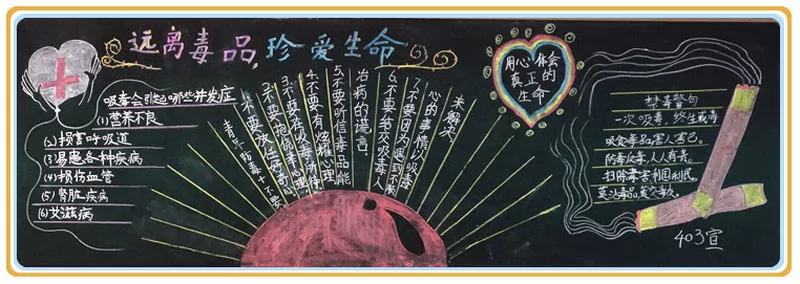 远离毒品,珍爱生命
吸毒会引起哪些并发症
(1)营养不良
(2)损害呼吸道
(3)易患各种疾病
(4)损伤血管
(5)肾脏疾病
(6)艾滋病
青年防毒十不要
4.不要有炫耀心理
5.不要听信毒品能
治病的谎言.
6.不要结交吸毒人
7.不要因为遇到不顺
心的事情以吸毒
来解决.
用心体会
真正的
生命
禁毒警句
一次吸毒,终生戒毒
吸食毒品害人害己。
防毒反毒,人人有责。
扫除毒害利国利民。
403宣